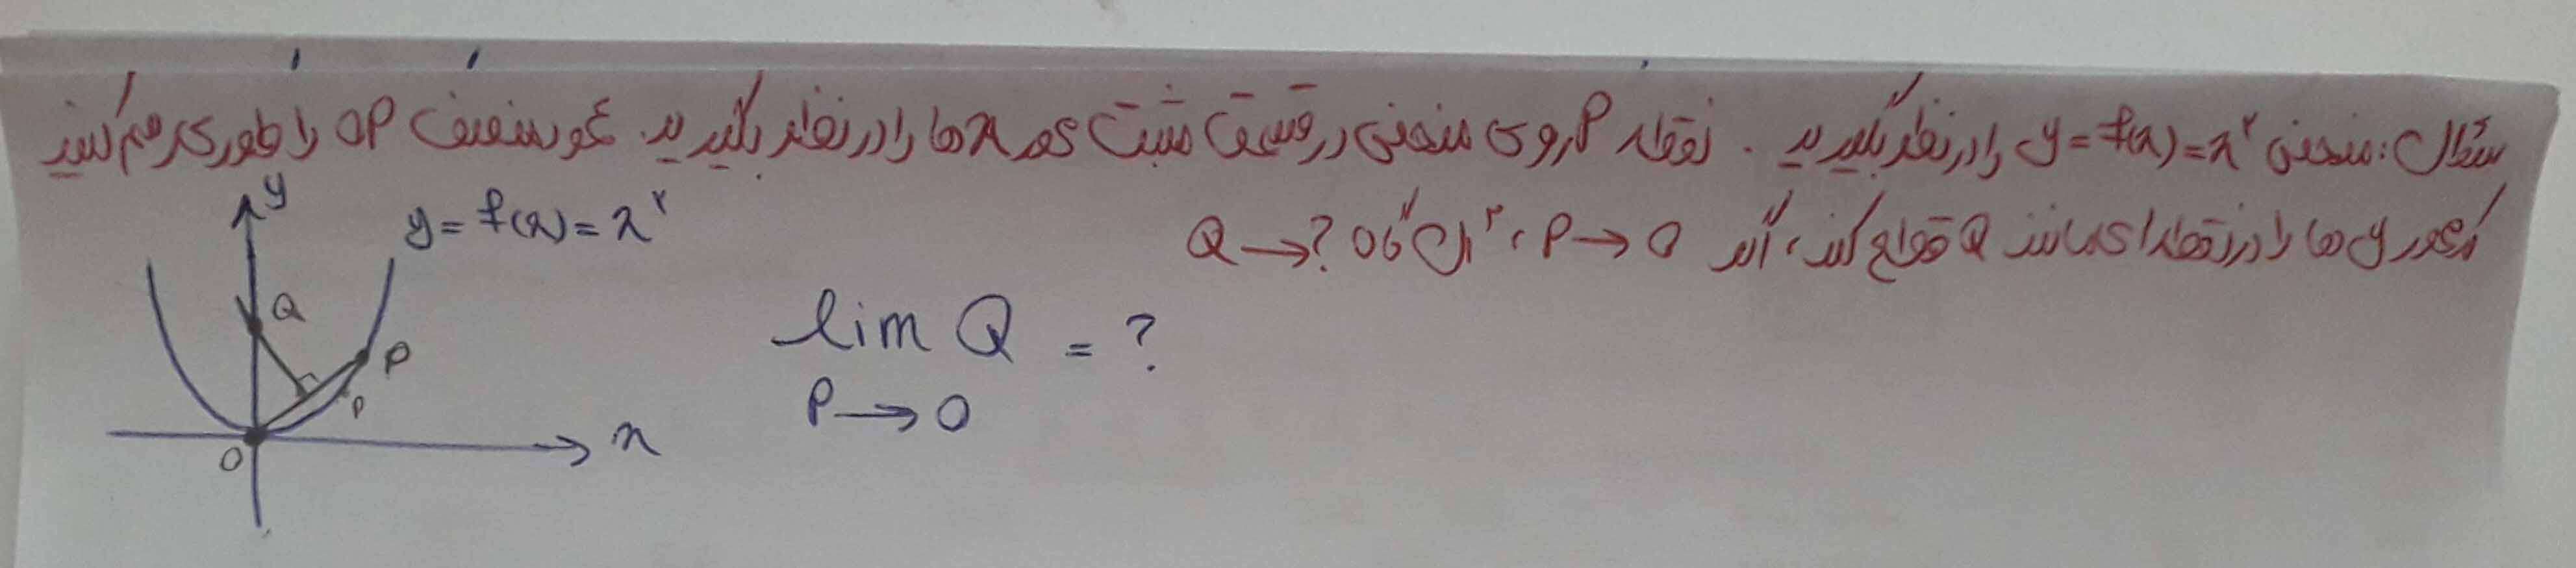 سئوال: منحنی y = f(x) = x² را در نظر بگیرید. نقطه P روی منحنی در قسمت مثبت محور xها را در نظر بگیرید. عمود منصف OP را طوری رسم کنید
که محور yها را در نقطه ای مانند Q قطع کند، اگر P → O، آن گاه Q → ?
y
y = f(x) = x²
Q
lim Q = ?
P
P → O
P
x
O